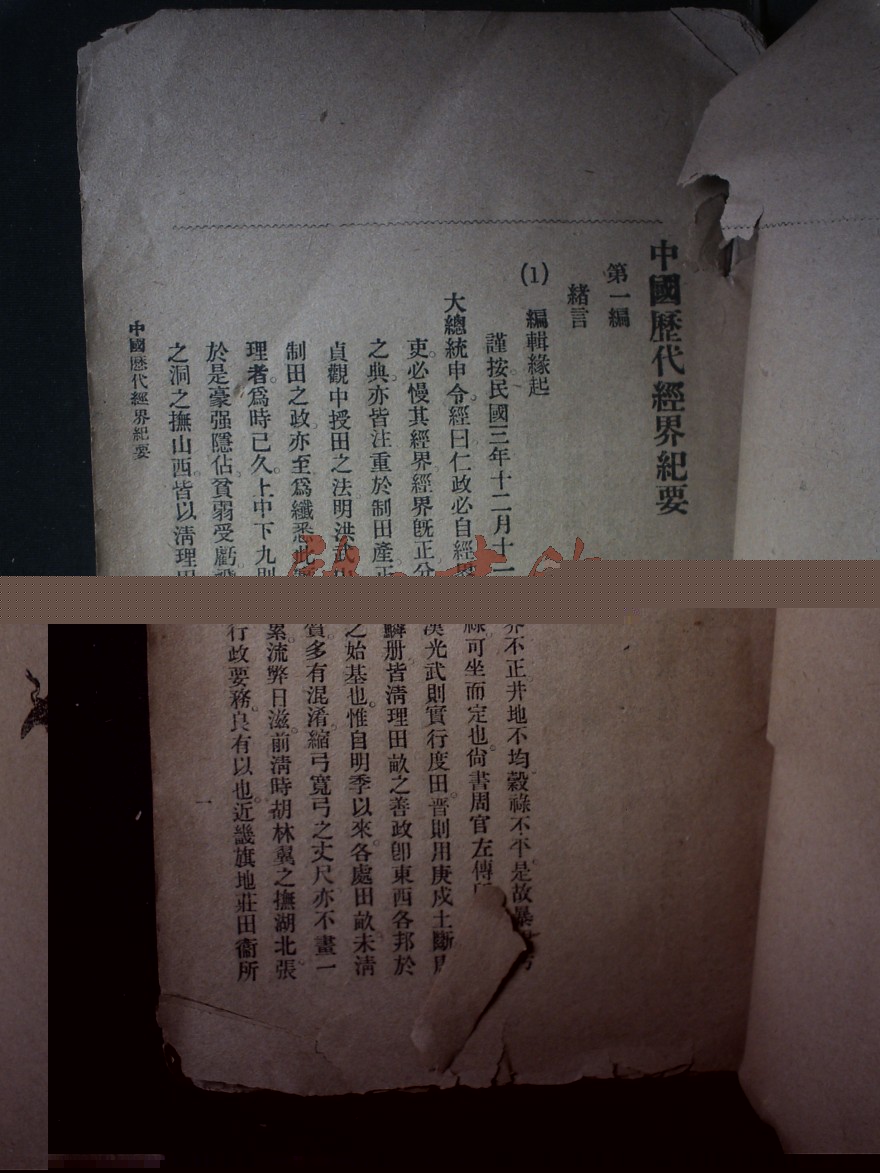 中國歷代經界紀要
第一編
緒言
(1) 編輯緣起
謹按民國三年十二月十一
大總統申令。經曰仁政必自經界不正井地不均穀祿不平。是故暴
吏必慢其經界。經界既正分祿可坐而定也。尙書周官左傳
之典亦皆注重於制田產漢光武則實行度田。晋則用庚戌土斷
貞觀中授田之法明洪武鱗册皆淸理田畝之善政卽東西各邦於
制田之政亦至爲纖悉此之始基也。惟自明季以來各處田畝未淸
理者爲時已久。上中下九則多有混淆。縮弓寬弓之丈尺亦不畫一
於是豪强隱佔。貧弱受虧累流弊日滋。前淸時胡林翼之撫湖北張
之洞之撫山西。皆以淸理田行政要務。良有以也。近畿旗地莊田衞所
中國歷代經界紀要
一